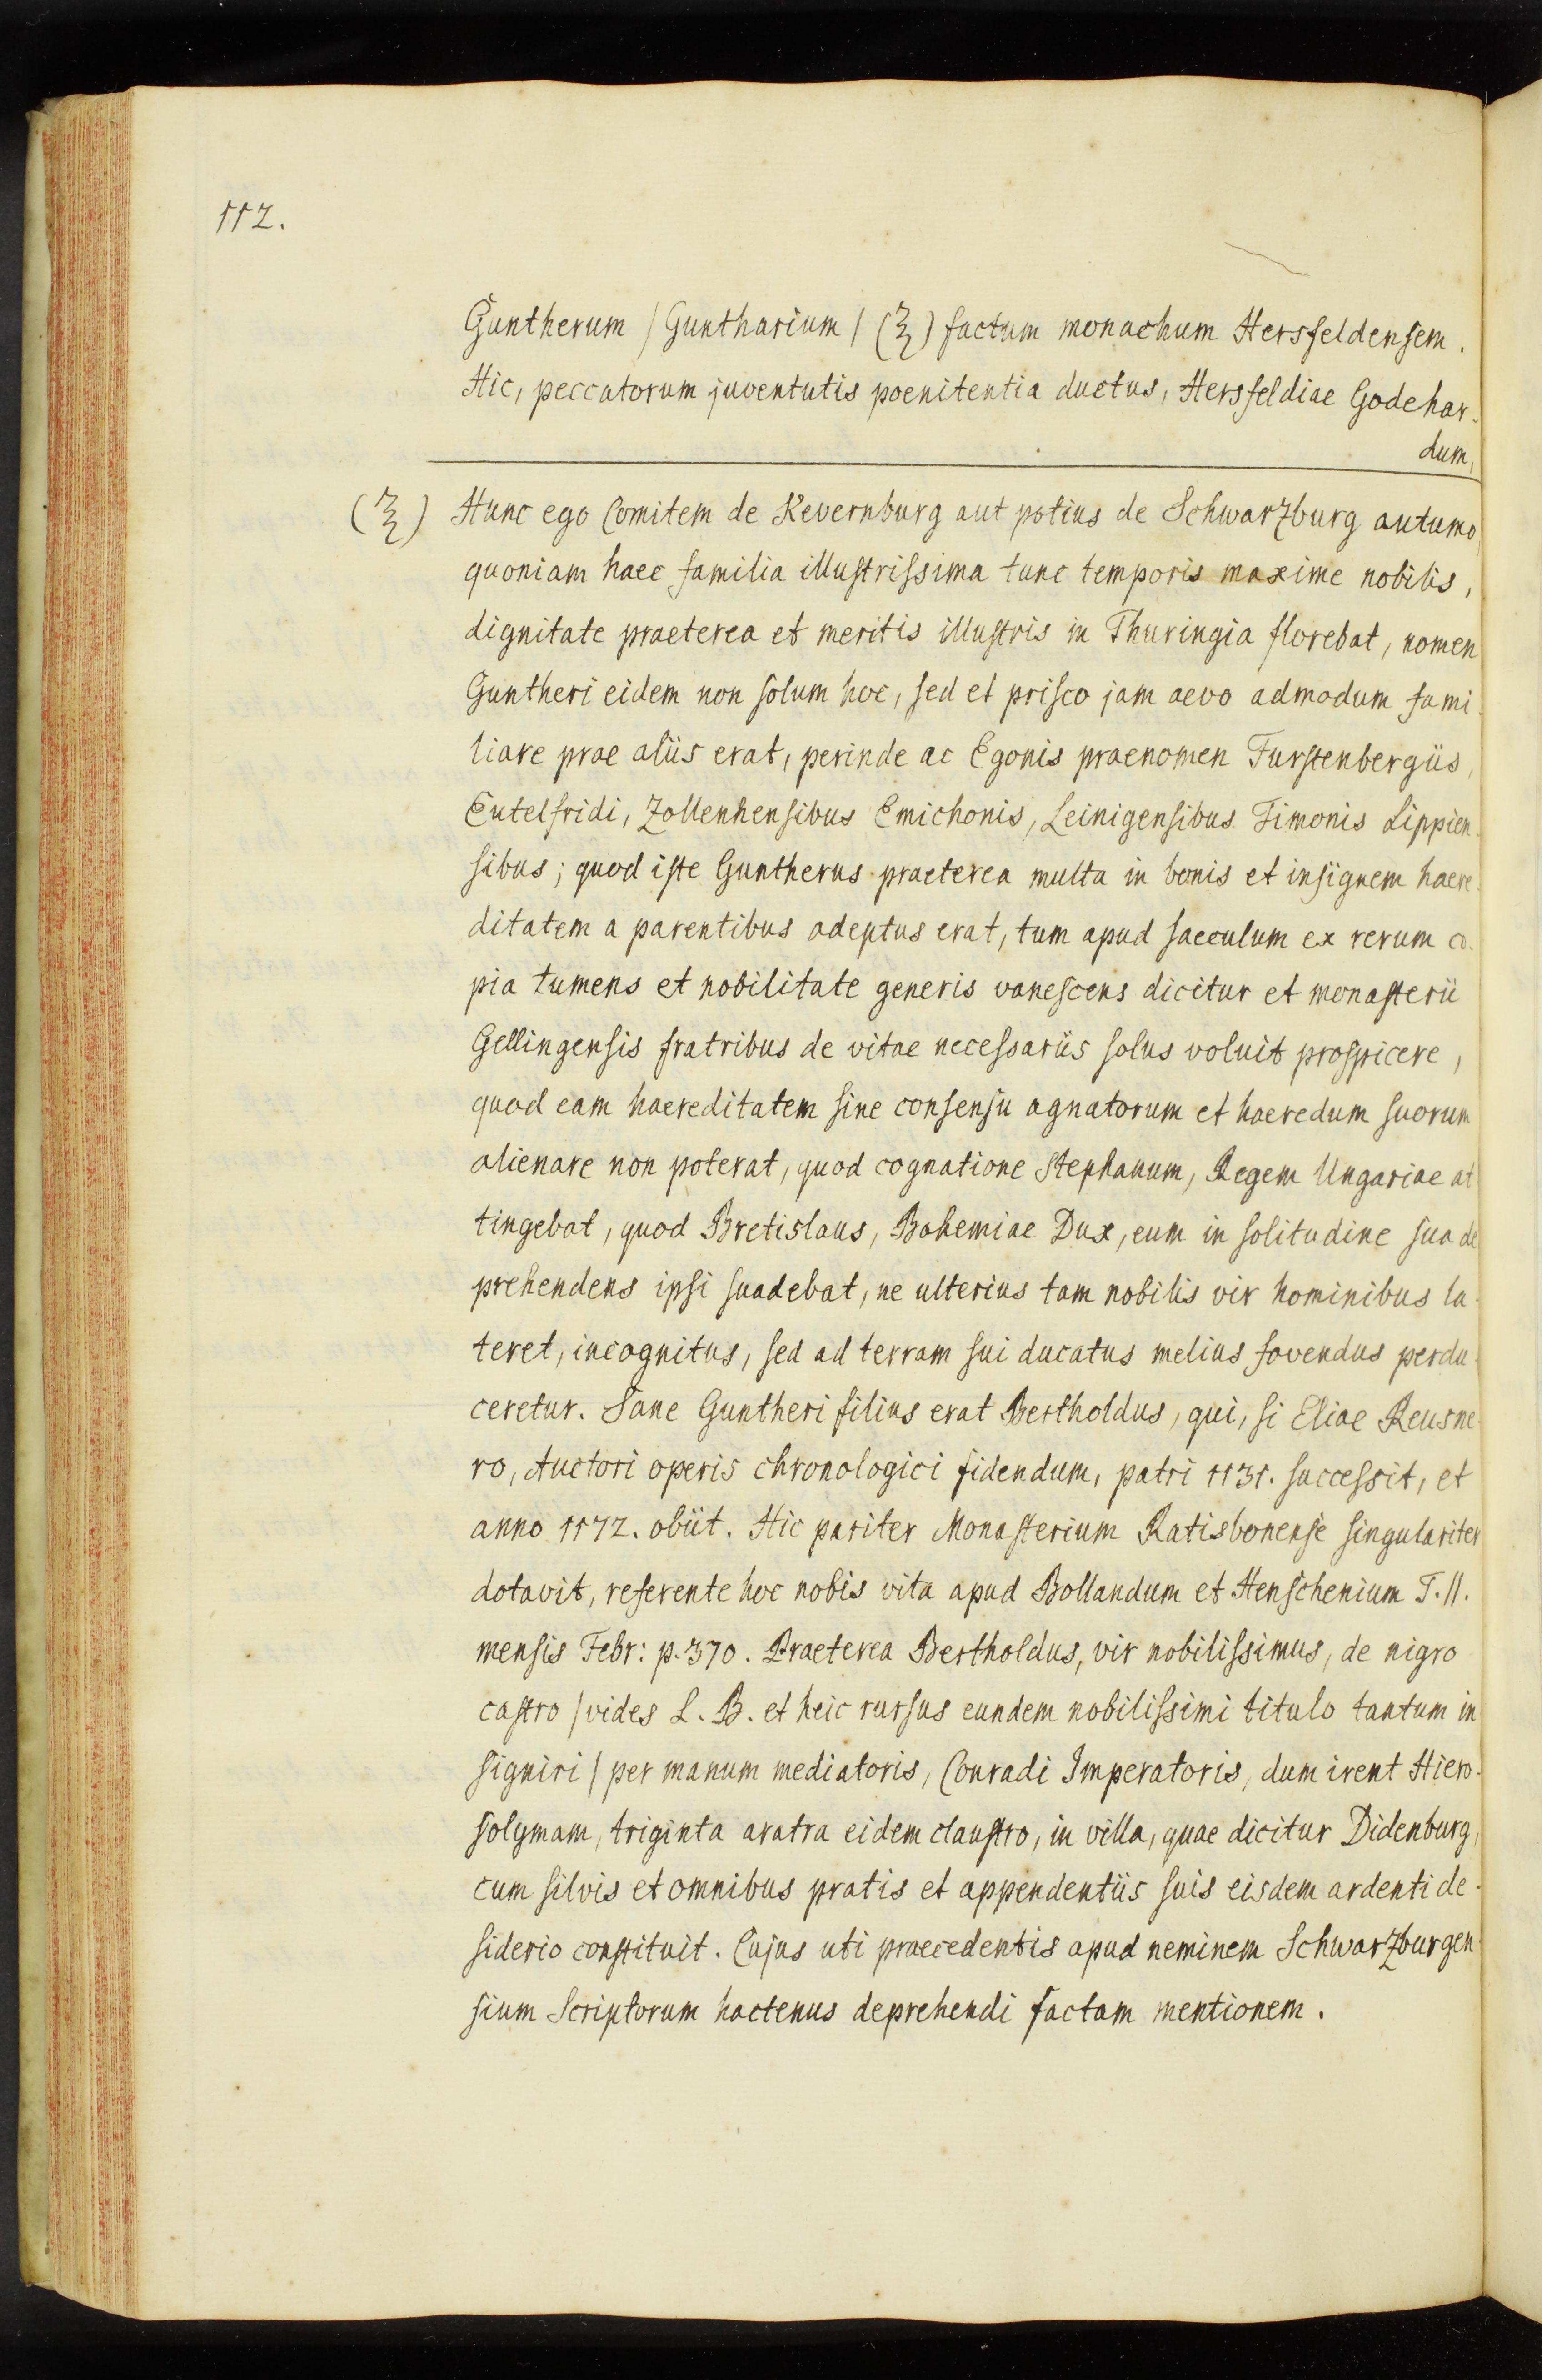 112.
Guntherum / Guntharium / (ξ) factum monachum Hersfeldensem.
Hic, peccatorum juventutis poenitentia ductus, Hersfeldiae Godehar-
dum,
(ξ) Hunc ego Comitem de Kevernburg aut potius de Schwarzburg autumo,
quoniam haec familia illustrissima tunc temporis maxime nobilis,
dignitate praeterea et meritis illustris in Thuringia florebat, nomen
Guntheri eidem non solum hoc, sed et prisco jam aevo admodum fami-
liare prae aliis erat, perinde ac Egonis praenomen Furstenbergiis,
Eutelfridi, Zollenhensibus Emichonis, Leinigensibus Timonis Lippien-
sibus; quod iste Guntherus praeterea multa in bonis et insignem haere-
ditatem a parentibus adeptus erat, tum apud saeculum ex rerum co-
pia tumens et nobilitate generis vanescens dicitur et monasterii
Gellingensis fratribus de vitae necessariis solus voluit prospicere,
quod eam haereditatem sine consensu agnatorum et haeredum suorum
alienare non poterat, quod cognatione Stephanum, Regem Ungariae at
tingebat, quod Bretislaus, Bohemiae Dux, eum in solitudine sua de
prehendens ipsi suadebat, ne ulterius tam nobilis vir hominibus la-
teret, incognitus, sed ad terram sui ducatus melius fovendus perdu-
ceretur. Sane Guntheri filius erat Bertholdus, qui, si Eliae Reusne-
ro, Auctori operis chronologici fidendum, patri 1131. successit, et
anno 1172. obiit. Hic pariter Monasterium Ratisbonense singulariter
dotavit, referente hoc nobis vita apud Bollandum et Henschenium T. II.
mensis Febr: p. 370. Praeterea Bertholdus, vir nobilissimus, de nigro
castro / vides L. B. et heic rursus eundem nobilissimi titulo tantum in
signiri / per manum mediatoris, Conradi Imperatoris, dum irent Hiero-
solymam, triginta aratra eidem claustro, in villa, quae dicitur Didenburg,
cum silvis et omnibus pratis et appendentiis suis eisdem ardenti de-
siderio constituit. Cujus uti praecedentis apud neminem Schwarzburgen-
sium Scriptorum hactenus deprehendi factam mentionem.